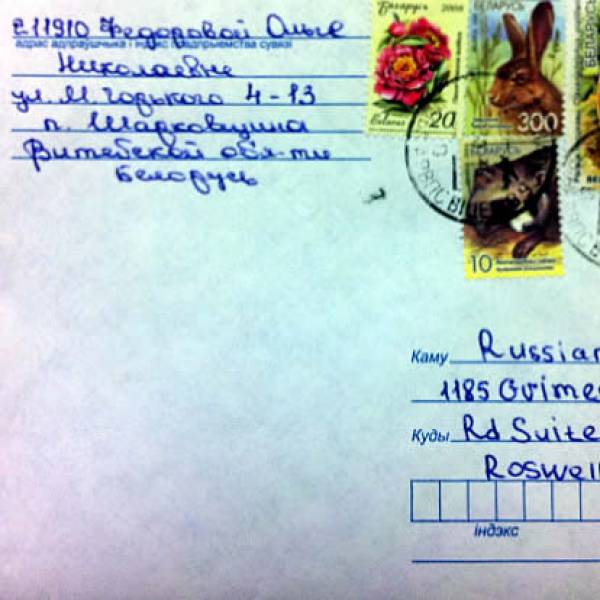 211910 Федоровой Ольге
адрас адпраўшчыка і індэкс прадпрыемства сувязі
Николаевне
ул. М. Горького 4-13
п. Шарковщина
Витебской обл-ти
Белорусь
Беларусь 2008
Belarus 20
БЕЛАРУСЬ
300
БЕЛАРУСЬ
10
Каму Russian
1185 Grimes
Куды Rd Suite
Roswell
індэкс